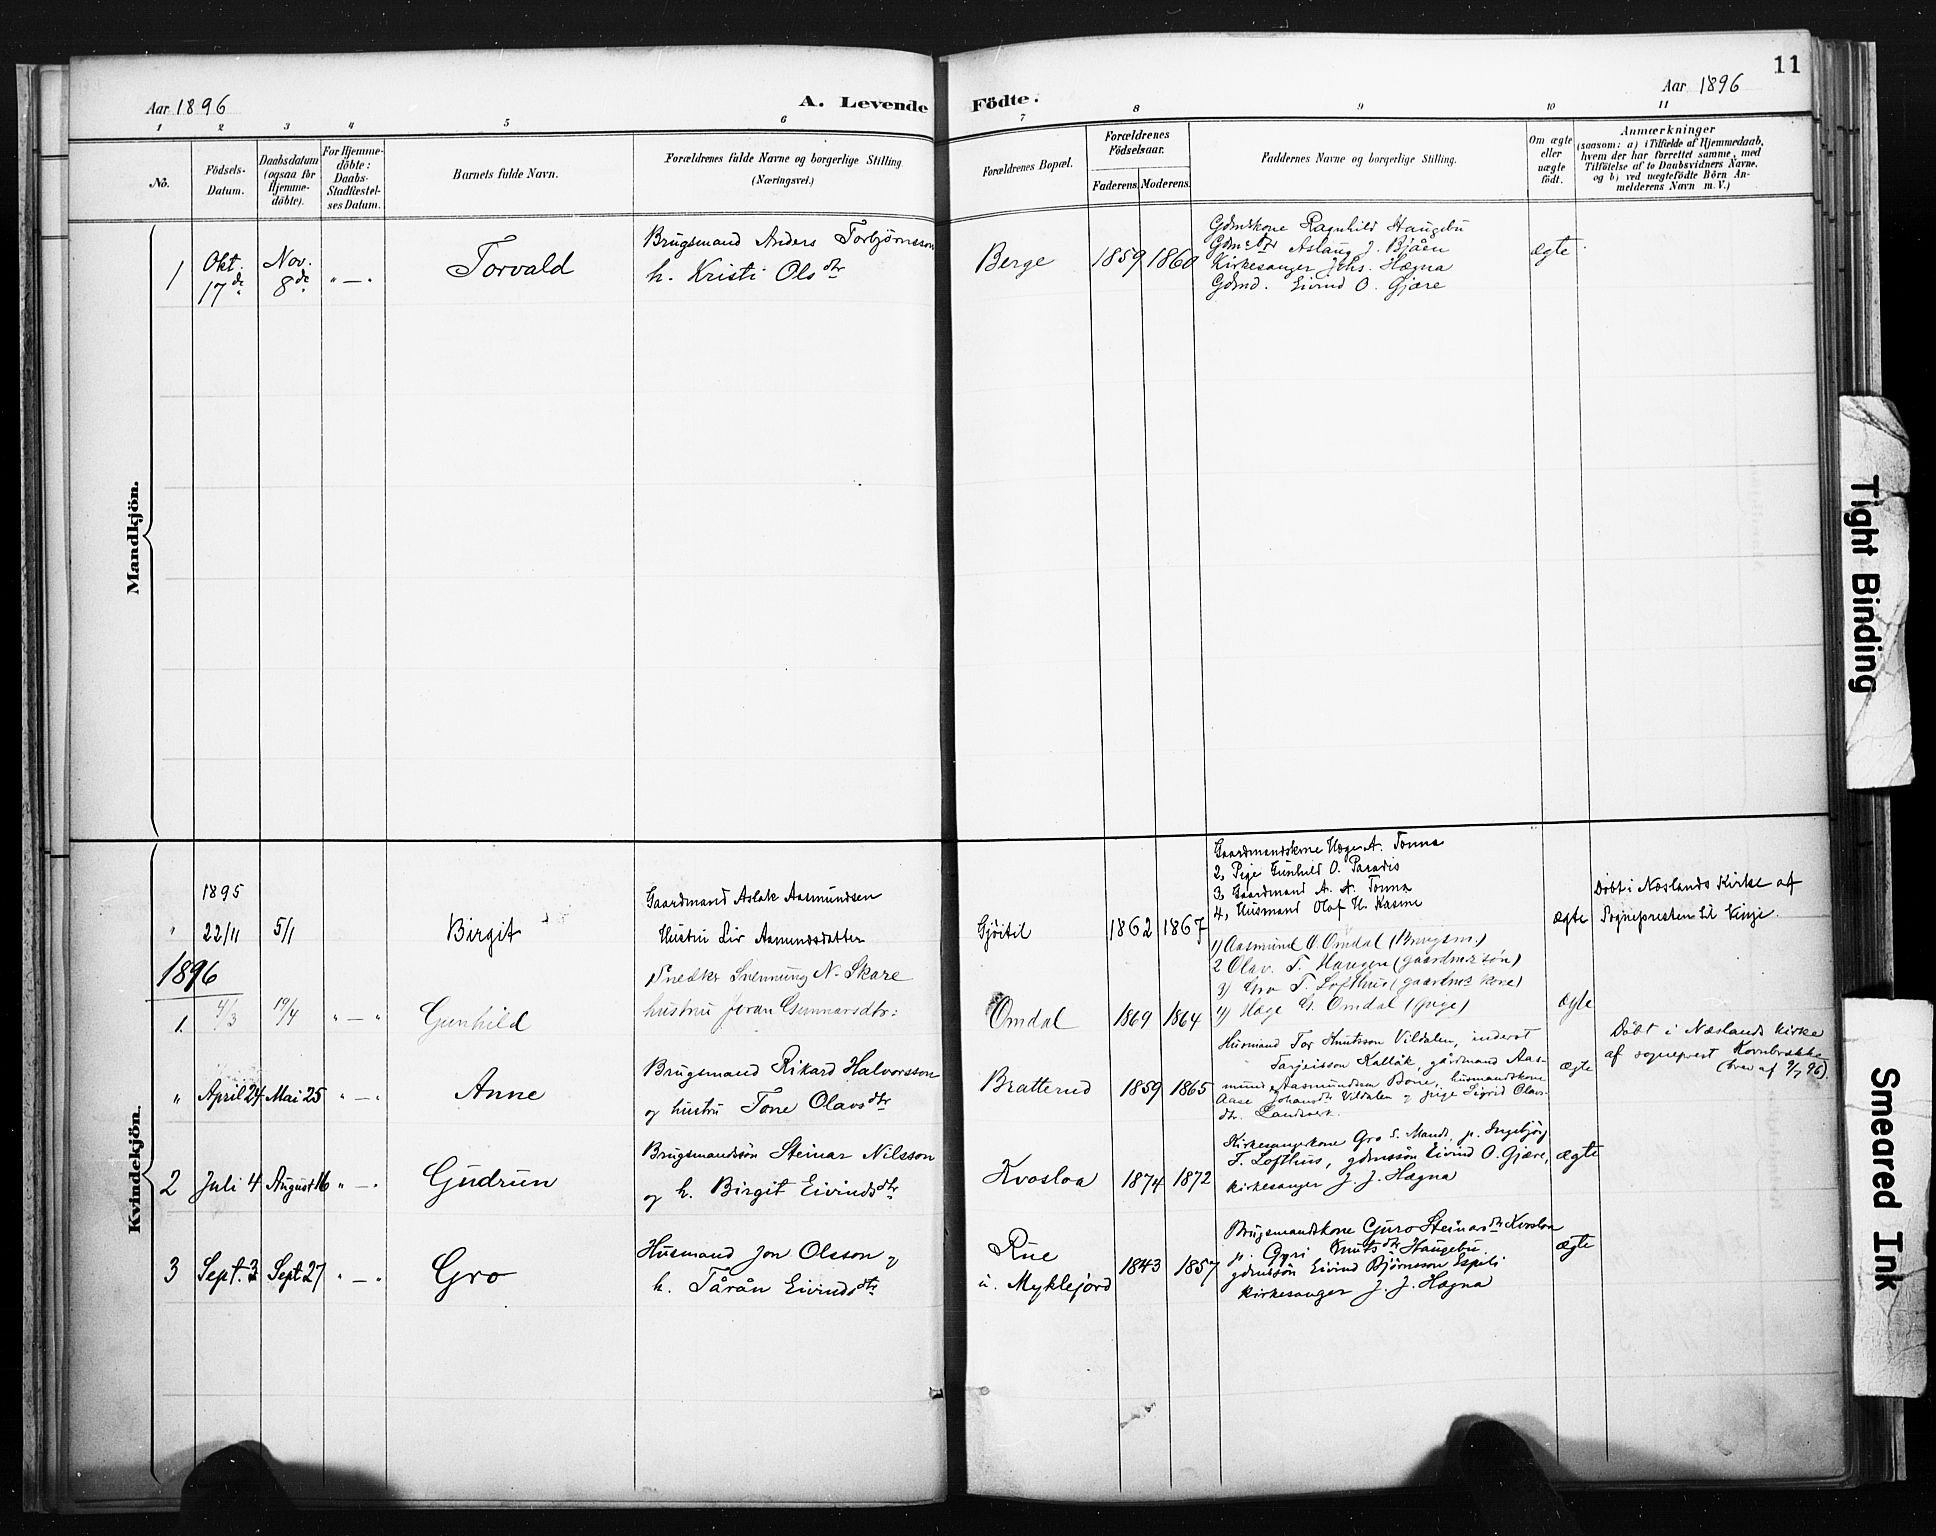 11
Aar 1896
A. Levende Födte.
Aar 1896
1 2 3 4 5 6 7 8 9 10 11
No.
Födsels-
Datum.
Daabsdatum
(ogsaa for
Hjemme-
döbte).
For Hjemme-
döbte:
Daabs-
Stadfæstel-
ses Datum.
Barnets fulde Navn.
Forældrenes fulde Navne og borgerlige Stilling
(Næringsvei.)
Forældrenes Bopæl.
Forældrenes
Födselsaar.
Faderens. Moderens.
Faddernes Navne og borgerlige Stilling.
Om ægte
eller
uægte
födt.
Anmærkninger
(saasom: a) i Tilfælde af Hjemmedaab,
hvem der har forrettet samme, med
Tilföielse af to Daabsvidners Navne,
og b) ved uægtefödte Börn An-
melderens Navn m. V.)
Mandkjön.
1
Okt.
17de
Nov.
8de
" — "
Torvald
Brugsmand Anders Torbjørnsson
h. Kristi Olsdtr
Berge
1859 1860
Gdmskone Ragnhild Haugebu
Aslaug J. Bjåen
Kirkesanger Johs. Hægna
Gdmd. Eivind O. Gjære
ægte
Kvindekjön.
1895
"
22/11
5/1
Birgit
Gaardmand Aslak Aasmundsen
Hustru Liv Aamundsdatter
Gjöitil
1862 1867
Gaardmandskone Hæge A. Tonna
2, Pige Gunhild O. Paradis
3, Gaardmand A. A. Tonna
4, Husmand Olaf H. Kasine
ægte
Døbt i Næslands Kirke af
Sognepresten til Vinje.
1896
1.
4/3
19/4
" — "
Gunhild
Snedker Svennung N. Skare
hustru Jøran Gunnarsdtr:
Omdal
1869 1864
1) Aasmund O. Omdal (Brugsm.)
2 Olav T. Haugen (gaardms søn)
3) Gro T. Lofthus (gaardms kone)
4) Hæge G. Omdal (pige)
ægte
"
April 24
Mai 25
" — "
Anne
Brugsmand Rikard Halvorsson
og hustru Tone Olavsdtr
Bratterud
1859 1865
Husmand Tor Knutsson Vildalen, inderst
Tarjeisson Kallåk, gårdmand Aas-
mund Aasmundsen Bone, husmandskone
Aase Johansdtr Vildalen og pige Sigrid Olavs-
dtr. Landsverk.
ægte
Døbt i Næslands Kirke
af sogneprest Kornbrække
(brev af 9/7 96).
2
Juli 4
August 16
" — "
Gudrun
Brugsmandssön Steinar Nilsson
og h. Birgit Eivindsdtr
Kvosloa
1874 1872
Kirkesangerkone Gro S. Mandt, p. Ingebjörg
T. Lofthus, gdmssön Eivind O. Gjære,
kirkesanger J. J. Hægna
ægte
3
Sept. 3
Sept. 27
" — "
Gro
Husmand Jon Olsson og
h. Tårån Eivindsdtr
Rue
u. Myklejord
1843 1857
Brugsmandskone Guro Steinarsdtr Kvosloa
p. Gyri Knutsdtr Haugebu
gdmssön Eivind Björnsson Espeli
kirkesanger J. J. Hægna
ægte
Tight Binding
Smeared Ink